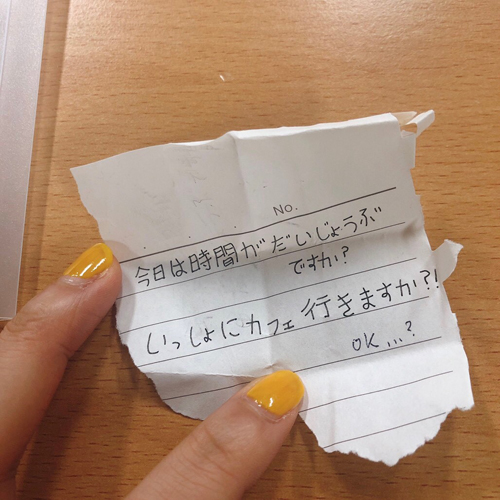 No.
今日は時間がだいじょうぶ
ですか?
いっしょにカフェ行きますか?!
OK...?